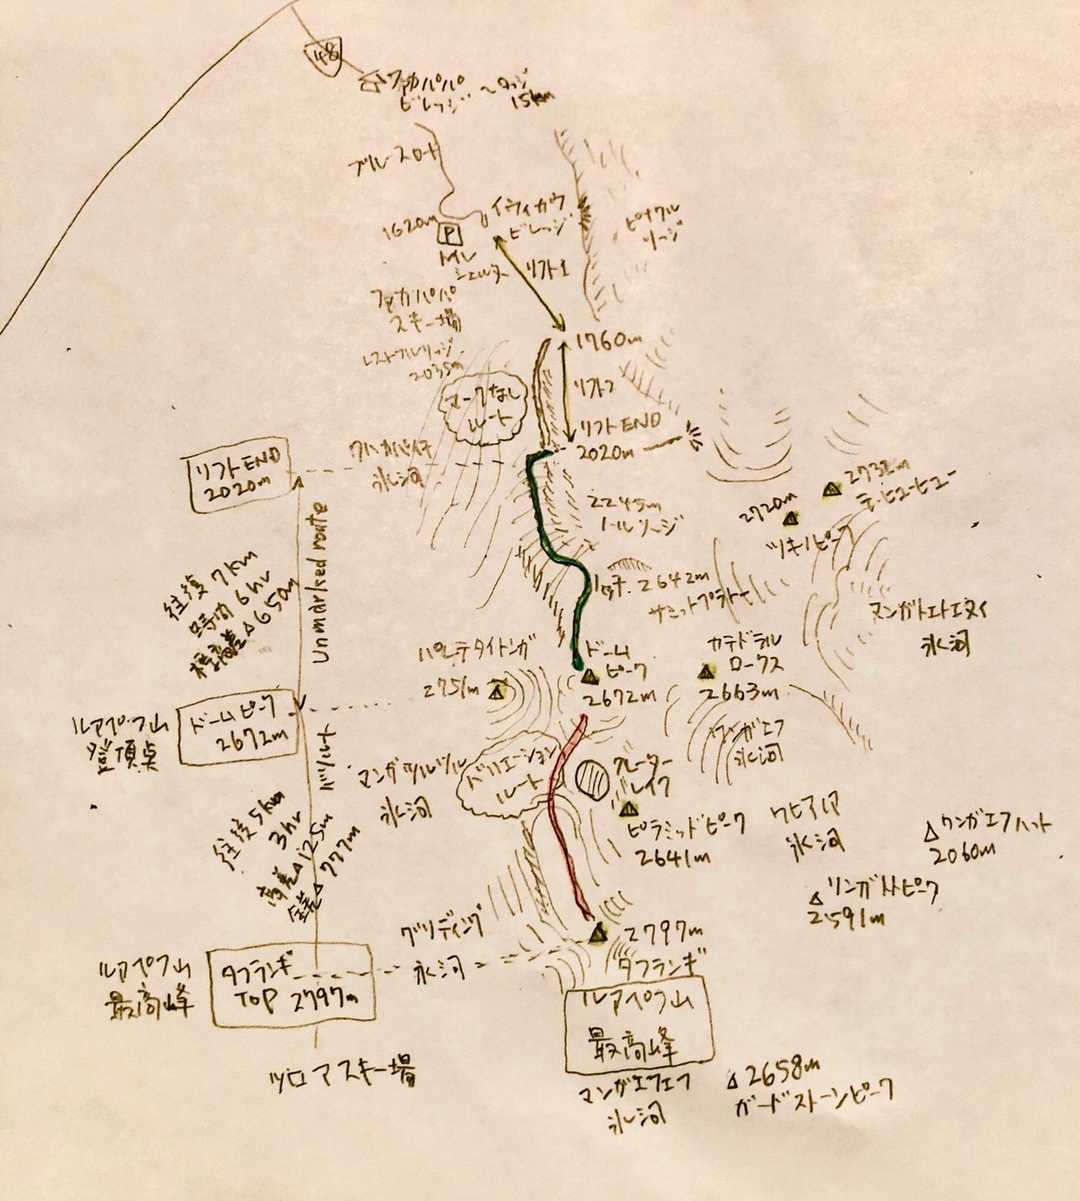 48
ファカパパ
ビレッジ
15km
ブルースロード
イウィカウ
ビレッジ
1620m
P
トイレ
シェルター
リフト1
ピナクル
リッジ
ファカパパ
スキー場
1760m
レストフルリッジ
2035m
マークなし
ルート
リフト2
リフトEND
2020m
リフトEND
2020m
氷河
2245m
2720m
ツキノピーク
Unmarked route
往復7km
6hr
標高差△650m
2642m
サミットプラトー
氷河
パレテタイトンガ
2751m
ドーム
ピーク
2672m
カテドラル
ロークス
2663m
ルアペフ山
登頂点
ドームピーク
2672m
ワンガエフ
氷河
マンガツルツル
氷河
バリエーション
ルート
クレーター
レイク
ピラミッドピーク
2641m
氷河
ワンガエフハット
2060m
2591m
往復5km
3hr
高差△125m
△777m
氷河
2797m
タフランギ
ルアペフ山
最高峰
タフランギ
TOP 2797m
ルアペフ山
最高峰
ツロアスキー場
マンガエフエフ
氷河
2658m
ガードストーンピーク